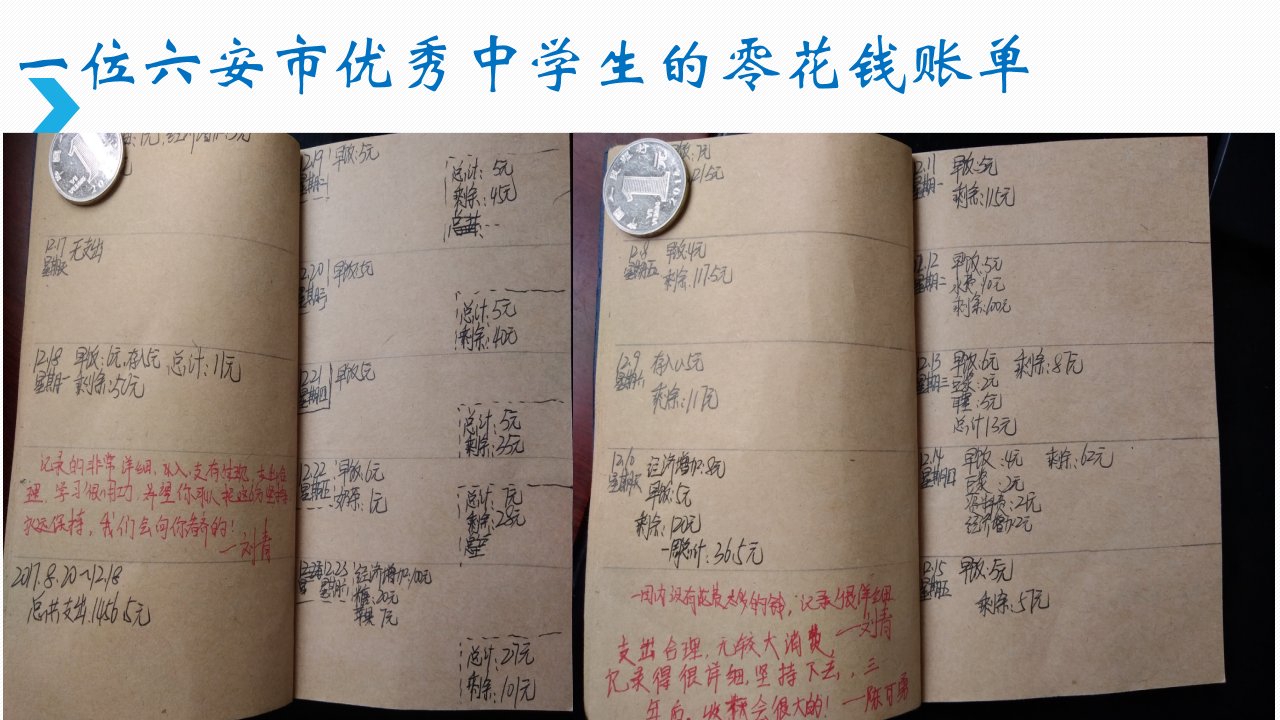 一位六安市优秀中学生的零花钱账单
12.17 无支出
星期天
12.18 早饭:6元,存入5元 总计:11元
星期一 剩余:50元
记录的非常详细,收入,支有体现,支出合
理,学习很用功,希望你可以把这份坚持
永远保持,我们会向你看齐的!
—刘青
2017.8.20~12.18
总共支出:1456.5元
12.19 早饭:5元
星期二
总计: 5元
剩余:45元
12.20 早饭:5元
星期三
总计:5元
剩余:40元
12.21 早饭5元
星期四
总计:5元
剩余:35元
12.22 早饭:6元
星期五 奶茶:1元
总计: 7元
剩余:28元
12.23 经济增加:100元
星期六
糖:20元
苹果 7元
总计:27元
剩余:101元
12.8 早饭:4元
星期五 剩余:117.5元
12.9 存入0.5元
星期六 剩余:117元
12.10 经济增加:8元
星期天 早饭:5元
剩余:120元
一周总计:36.5元
一周内没有花费太多的钱,记录很详细
—刘青
支出合理,无较大消费,
记录得很详细,坚持下去,三
年后,收获会很大的!—陈可勇
12.11 早饭:5元
星期一 剩余:115元
12.12 早饭:5元
星期二 水果:10元
剩余:100元
12.13 早饭:6元 剩余:87元
星期三 豆浆:2元
总计13元
12.14 早饭:4元 剩余:82元
星期四
经济增加2元
12.15 早饭:5元
星期五 剩余:57元